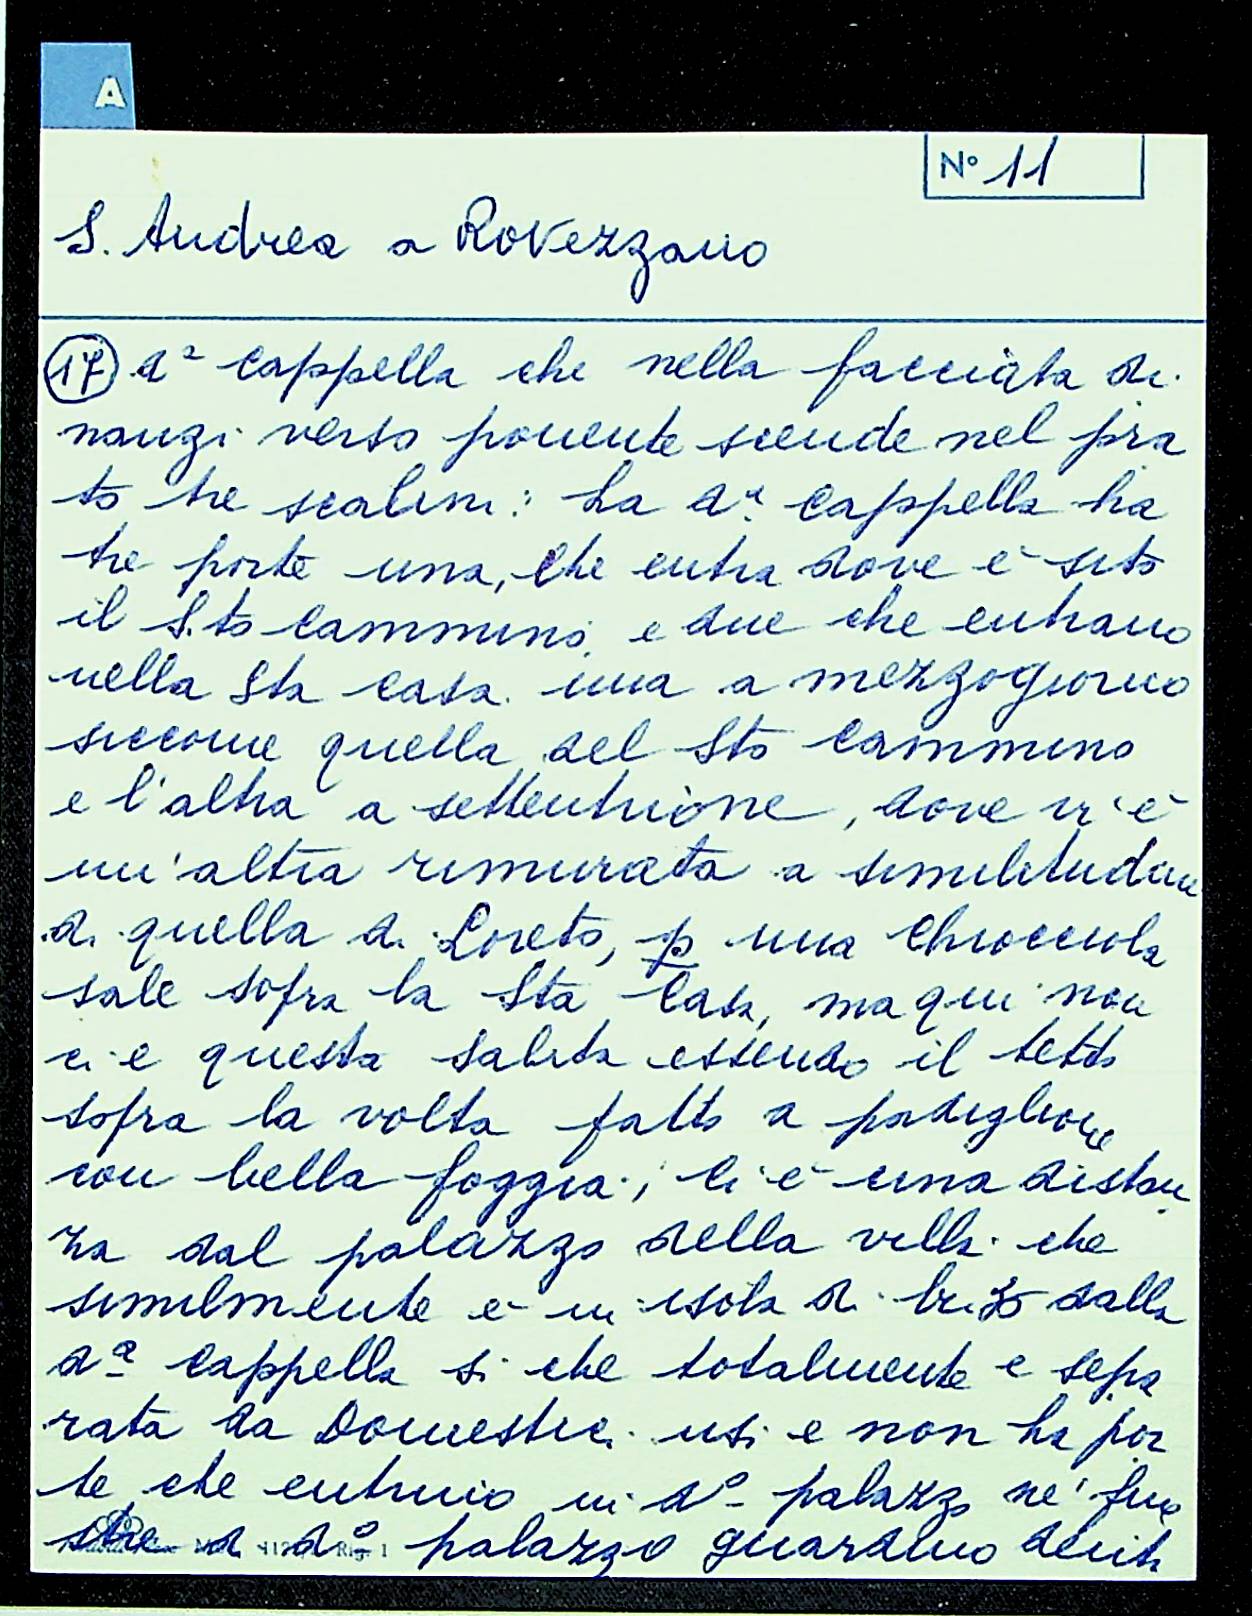 A
Nº 11
S. Andrea a Rovezzano
17 dª cappella che nella facciata di
nanzi verso ponente scende nel pra
to tre scalini: La dª cappella ha
tre porte una, che entra dove è sito
il S.to Cammino e due che entrano
nella Sta Casa. una a mezzogiorno
siccome quella del Sto Cammino
e l'altra a settentrione, dove vi è
un'altra rimurata a similitudine
di quella di Loreto, p una Chiocciola
sale sopra la Sta Casa, ma qui non
ci è questa salita essendo il tetto
sopra la volta fatto a padiglione
con bella foggia; Ci è una distan
za dal palazzo della villa che
similmente è in isola di br. 30 dalla
dª cappella si che totalmente e sepa
rata da Domestici usi e non ha por
te che entrino in dº palazzo ne' fine
stre di dº palazzo guardino dentr